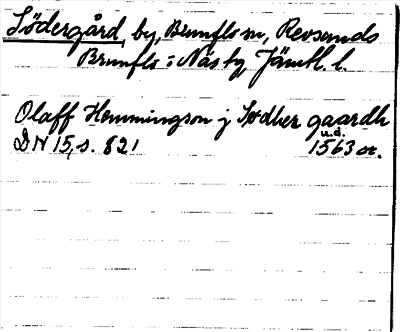 Södergård, by, Brunflo sn, Revsunds
Brunflo i Näs tg, Jämtl. l.
Olaff Hemmingson j Sødher gaardh
DN 15, s. 821 u.d. 1563 or.